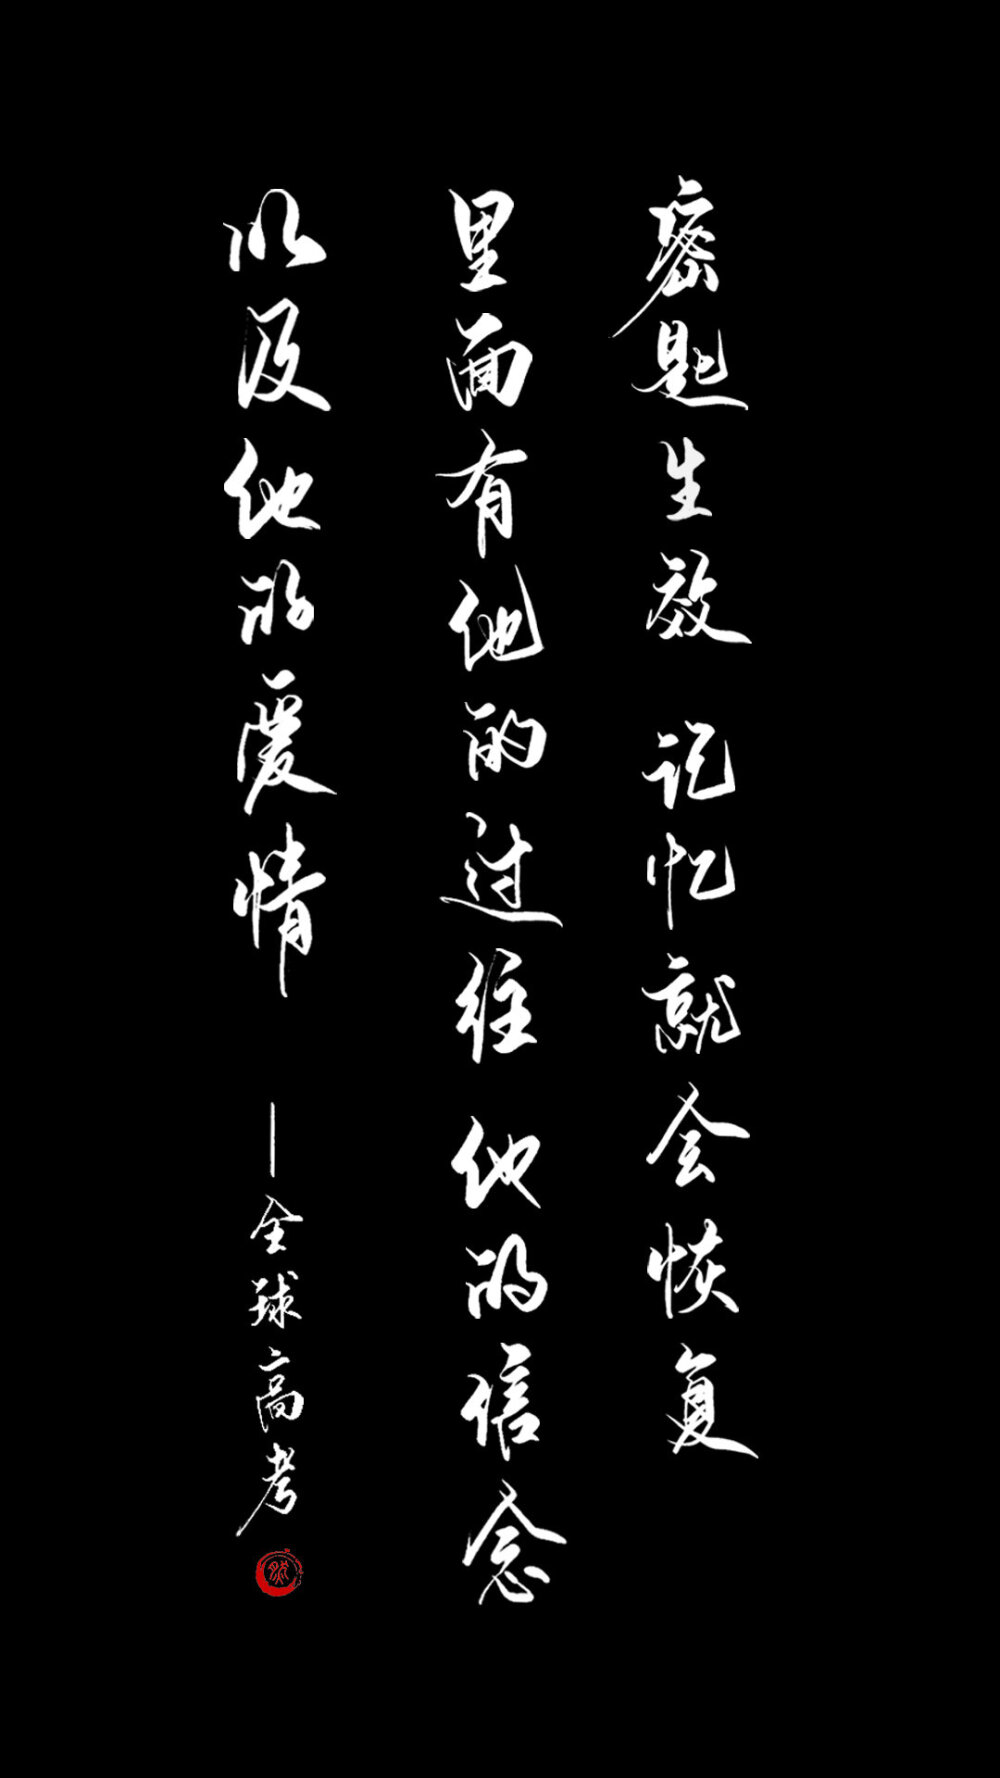 密匙生效 记忆就会恢复
里面有他的过往 他的信念
以及他的爱情
—全球高考